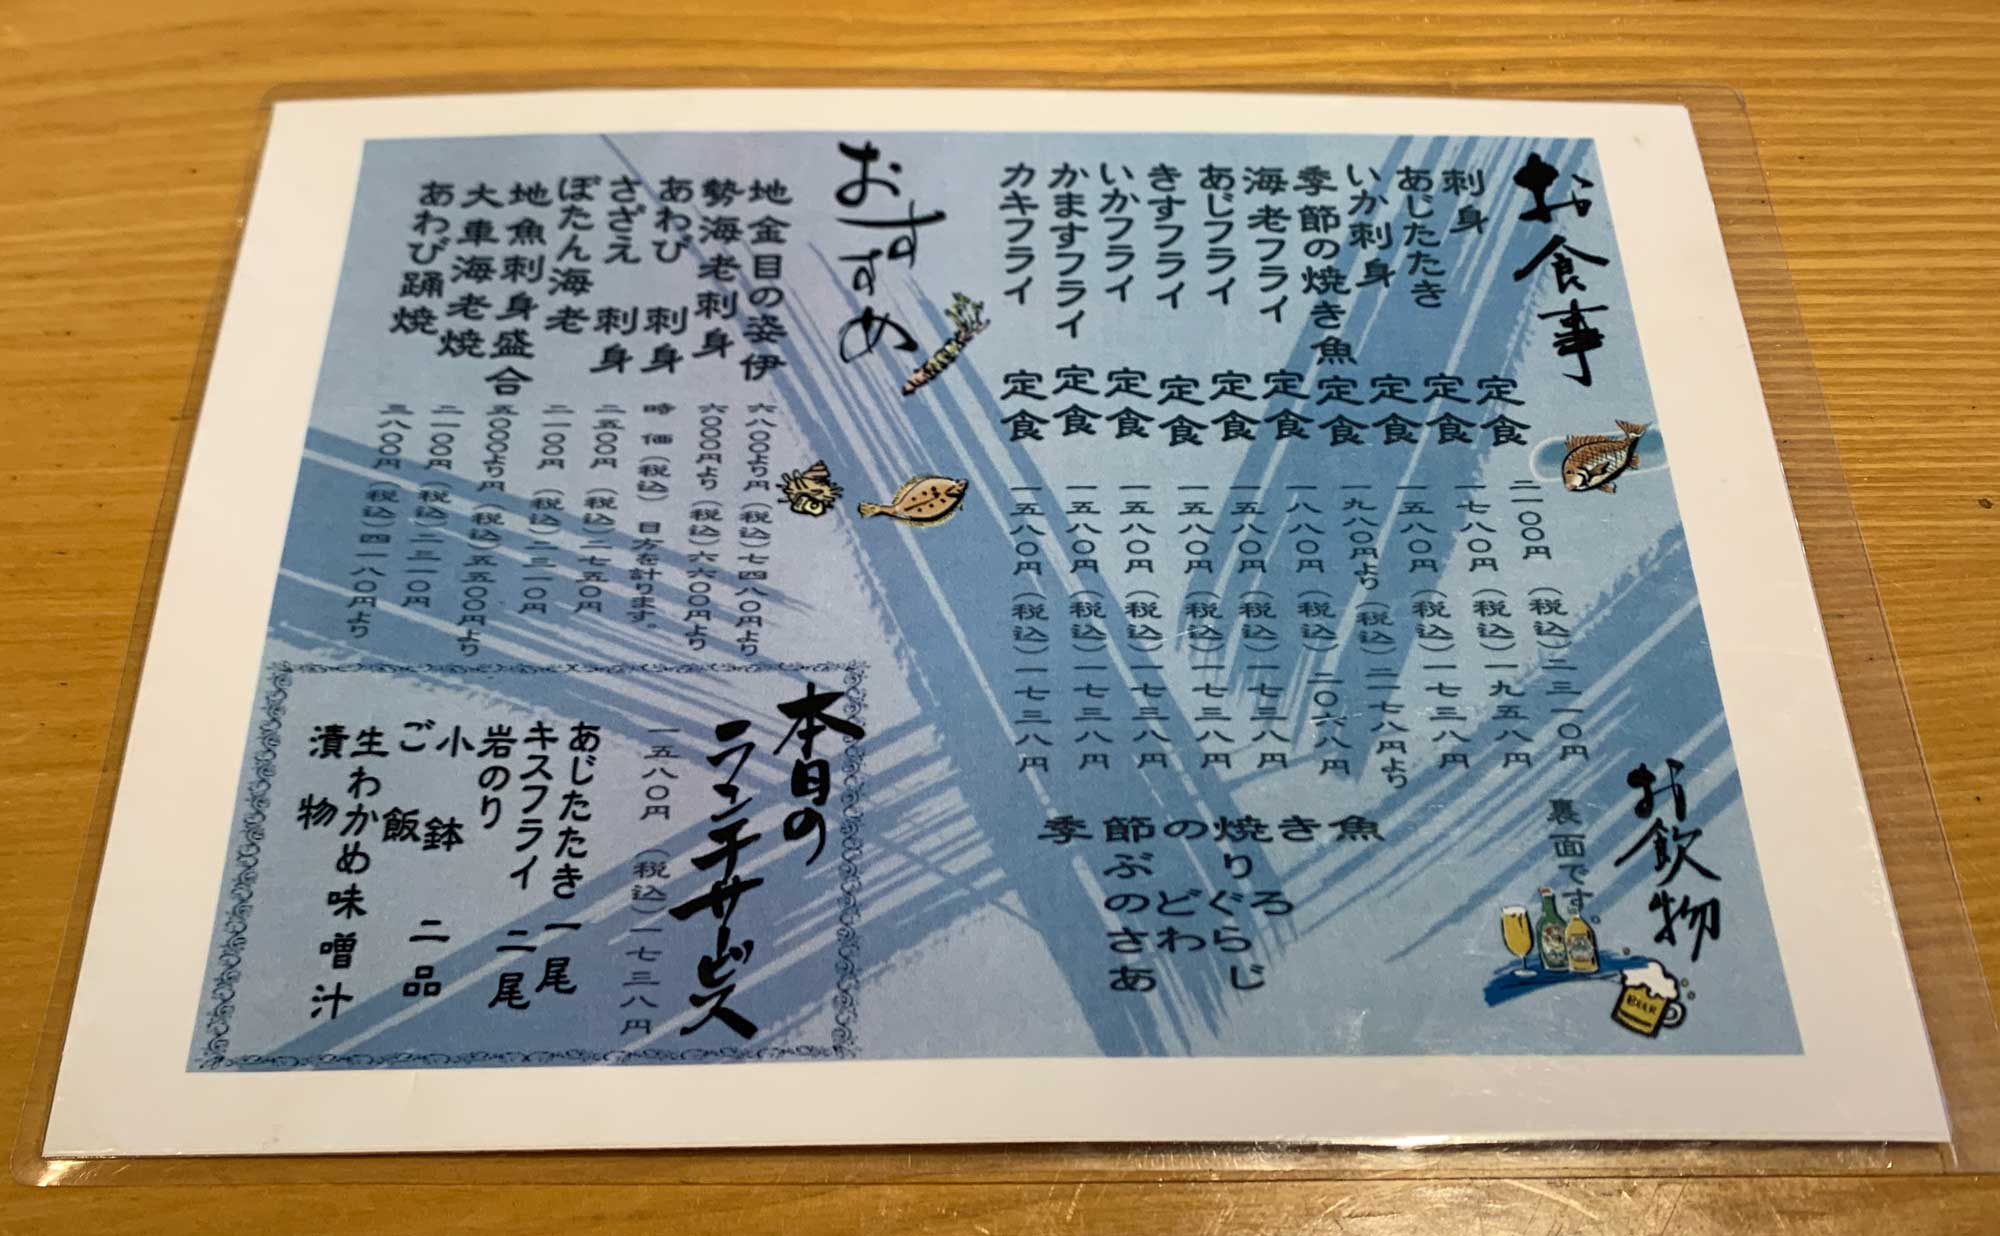 お食事
刺身 定食 二一〇〇円（税込）二三一〇円
あじたたき 定食 一七八〇円（税込）一九五八円
いか刺身 定食 一五八〇円（税込）一七三八円
季節の焼き魚 定食 一九八〇円より（税込）二一七八円より
海老フライ 定食 一八八〇円（税込）二〇六八円
あじフライ 定食 一五八〇円（税込）一七三八円
きすフライ 定食 一五八〇円（税込）一七三八円
いかフライ 定食 一五八〇円（税込）一七三八円
かますフライ 定食 一五八〇円（税込）一七三八円
カキフライ 定食 一五八〇円（税込）一七三八円
季節の焼き魚
ぶり
のどぐろ
さわら
あじ
お飲物
裏面です。
BEER
おすすめ
地金目の姿伊 六八〇〇より円（税込）七四八〇円より
勢海老刺身 六〇〇〇円より（税込）六六〇〇円より
あわび 刺身 時価（税込）目方を計ります。
さざえ 刺身 二五〇〇円（税込）二七五〇円
ぼたん海老 二一〇〇円（税込）二三一〇円
地魚刺身盛合 五〇〇〇より円（税込）五五〇〇円より
大車海老焼 二一〇〇円（税込）二三一〇円
あわび踊焼 三八〇〇円（税込）四一八〇円より
本日の
ランチサービス
一五八〇円（税込）一七三八円
あじたたき 一尾
キスフライ 二尾
岩のり
小鉢 二品
ご飯
生わかめ味噌汁
漬物